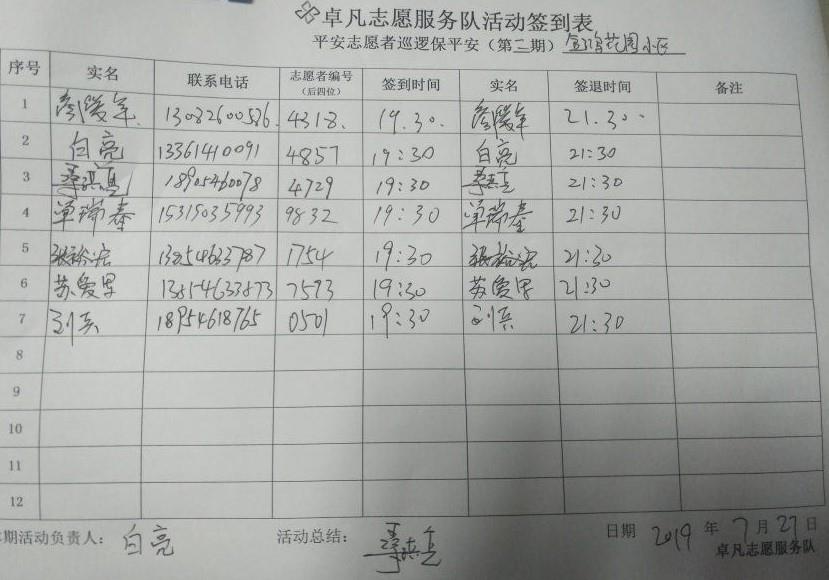 卓凡志愿服务队活动签到表
平安志愿者巡逻保平安（第二期）花园小区
序号 实名 联系电话 志愿者编号（后四位） 签到时间 实名 签退时间 备注
1 13082600586. 4318. 19.30. 21.30.
2 白亮 13361410091 4857 19:30 白亮 21:30
3 18905460078 4729 19:30 21:30
4 单瑞秦 15315035993 9832 19:30 单瑞秦 21:30
5 张裕宏 13854633787 1754 19:30 张裕宏 21:30
6 苏爱军 13854633873 7593 19:30 苏爱军 21:30
7 刘兵 18954618765 0501 19:30 刘兵 21:30
8
9
10
11
12
期活动负责人：白亮 活动总结： 日期 2019 年 7 月 27 日
卓凡志愿服务队